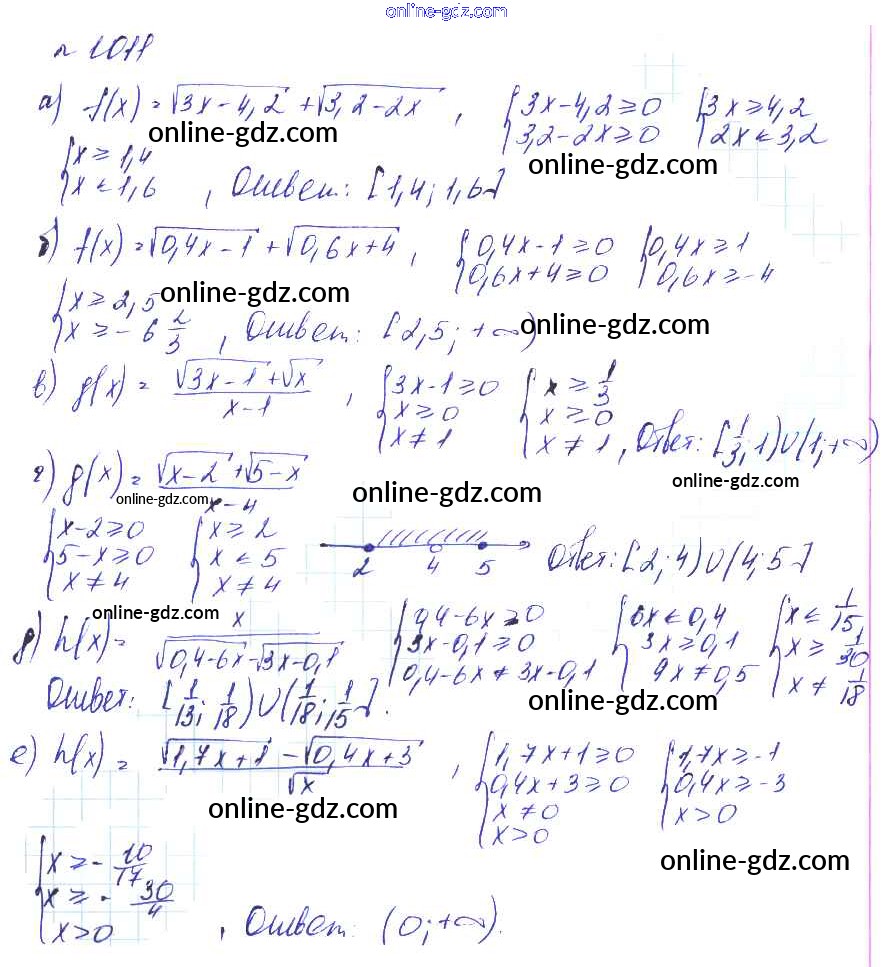 online-gdz.com
№ 1011
а) f(x) = √3x-4,2 + √3,2-2x , {3x-4,2 ≥ 0 {3x ≥ 4,2
{3,2-2x ≥ 0 {2x ≤ 3,2
online-gdz.com
online-gdz.com
{x ≥ 1,4
{x ≤ 1,6 , Ответ: [1,4; 1,6]
б) f(x) = √0,4x-1 + √0,6x+4 , {0,4x-1 ≥ 0 {0,4x ≥ 1
{0,6x+4 ≥ 0 {0,6x ≥ -4
online-gdz.com
{x ≥ 2,5
{x ≥ -6 2/3 , Ответ: [2,5; +∞)
online-gdz.com
в) g(x) = (√3x-1 + √x)/(x-1) , {3x-1 ≥ 0 {x ≥ 1/3
{x ≥ 0 {x ≥ 0
{x ≠ 1 {x ≠ 1 , Ответ: [1/3; 1) ∪ (1; +∞)
г) g(x) = (√x-2 + √5-x)/(x-4)
online-gdz.com
online-gdz.com
online-gdz.com
{x-2 ≥ 0 {x ≥ 2
{5-x ≥ 0 {x ≤ 5
{x ≠ 4 {x ≠ 4
2 4 5
Ответ: [2; 4) ∪ (4; 5]
online-gdz.com
д) h(x) = x/(√0,4-6x - √3x-0,1) {0,4-6x ≥ 0 {6x ≤ 0,4 {x ≤ 1/15
{3x-0,1 ≥ 0 {3x ≥ 0,1 {x ≥ 1/30
{0,4-6x ≠ 3x-0,1 {9x ≠ 0,5 {x ≠ 1/18
Ответ: [1/13; 1/18) ∪ (1/18; 1/15].
online-gdz.com
е) h(x) = (√1,7x+1 - √0,4x+3)/√x , {1,7x+1 ≥ 0 {1,7x ≥ -1
{0,4x+3 ≥ 0 {0,4x ≥ -3
{x ≠ 0 {x > 0
{x > 0
online-gdz.com
online-gdz.com
{x ≥ -10/17
{x ≥ -30/4
{x > 0 , Ответ: (0; +∞).